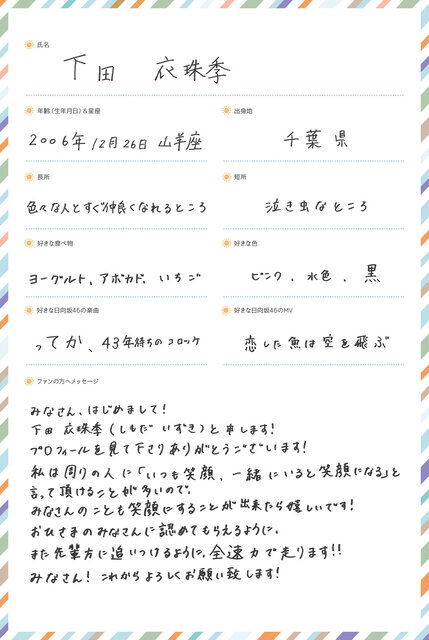 氏名
下田 衣珠季
年齢(生年月日)&星座
2006年 12月26日 山羊座
出身地
千葉県
長所
色々な人とすぐ仲良くなれるところ
短所
泣き虫なところ
好きな食べ物
ヨーグルト、アボカド、いちご
好きな色
ピンク、水色、黒
好きな日向坂46の楽曲
ってか、43年待ちのコロッケ
好きな日向坂46のMV
恋した魚は空を飛ぶ
ファンの方へメッセージ
みなさん、はじめまして!
下田衣珠季(しもだ いずき)と申します!
プロフィールを見て下さりありがとうございます!
私は周りの人に「いつも笑顔、一緒にいると笑顔になる」と
言って頂けることが多いので、
みなさんのことも笑顔にすることが出来たら嬉しいです!
おひさまのみなさんに認めてもらえるように、
また先輩方に追いつけるように、全速力で走ります!!
みなさん!これからよろしくお願い致します!